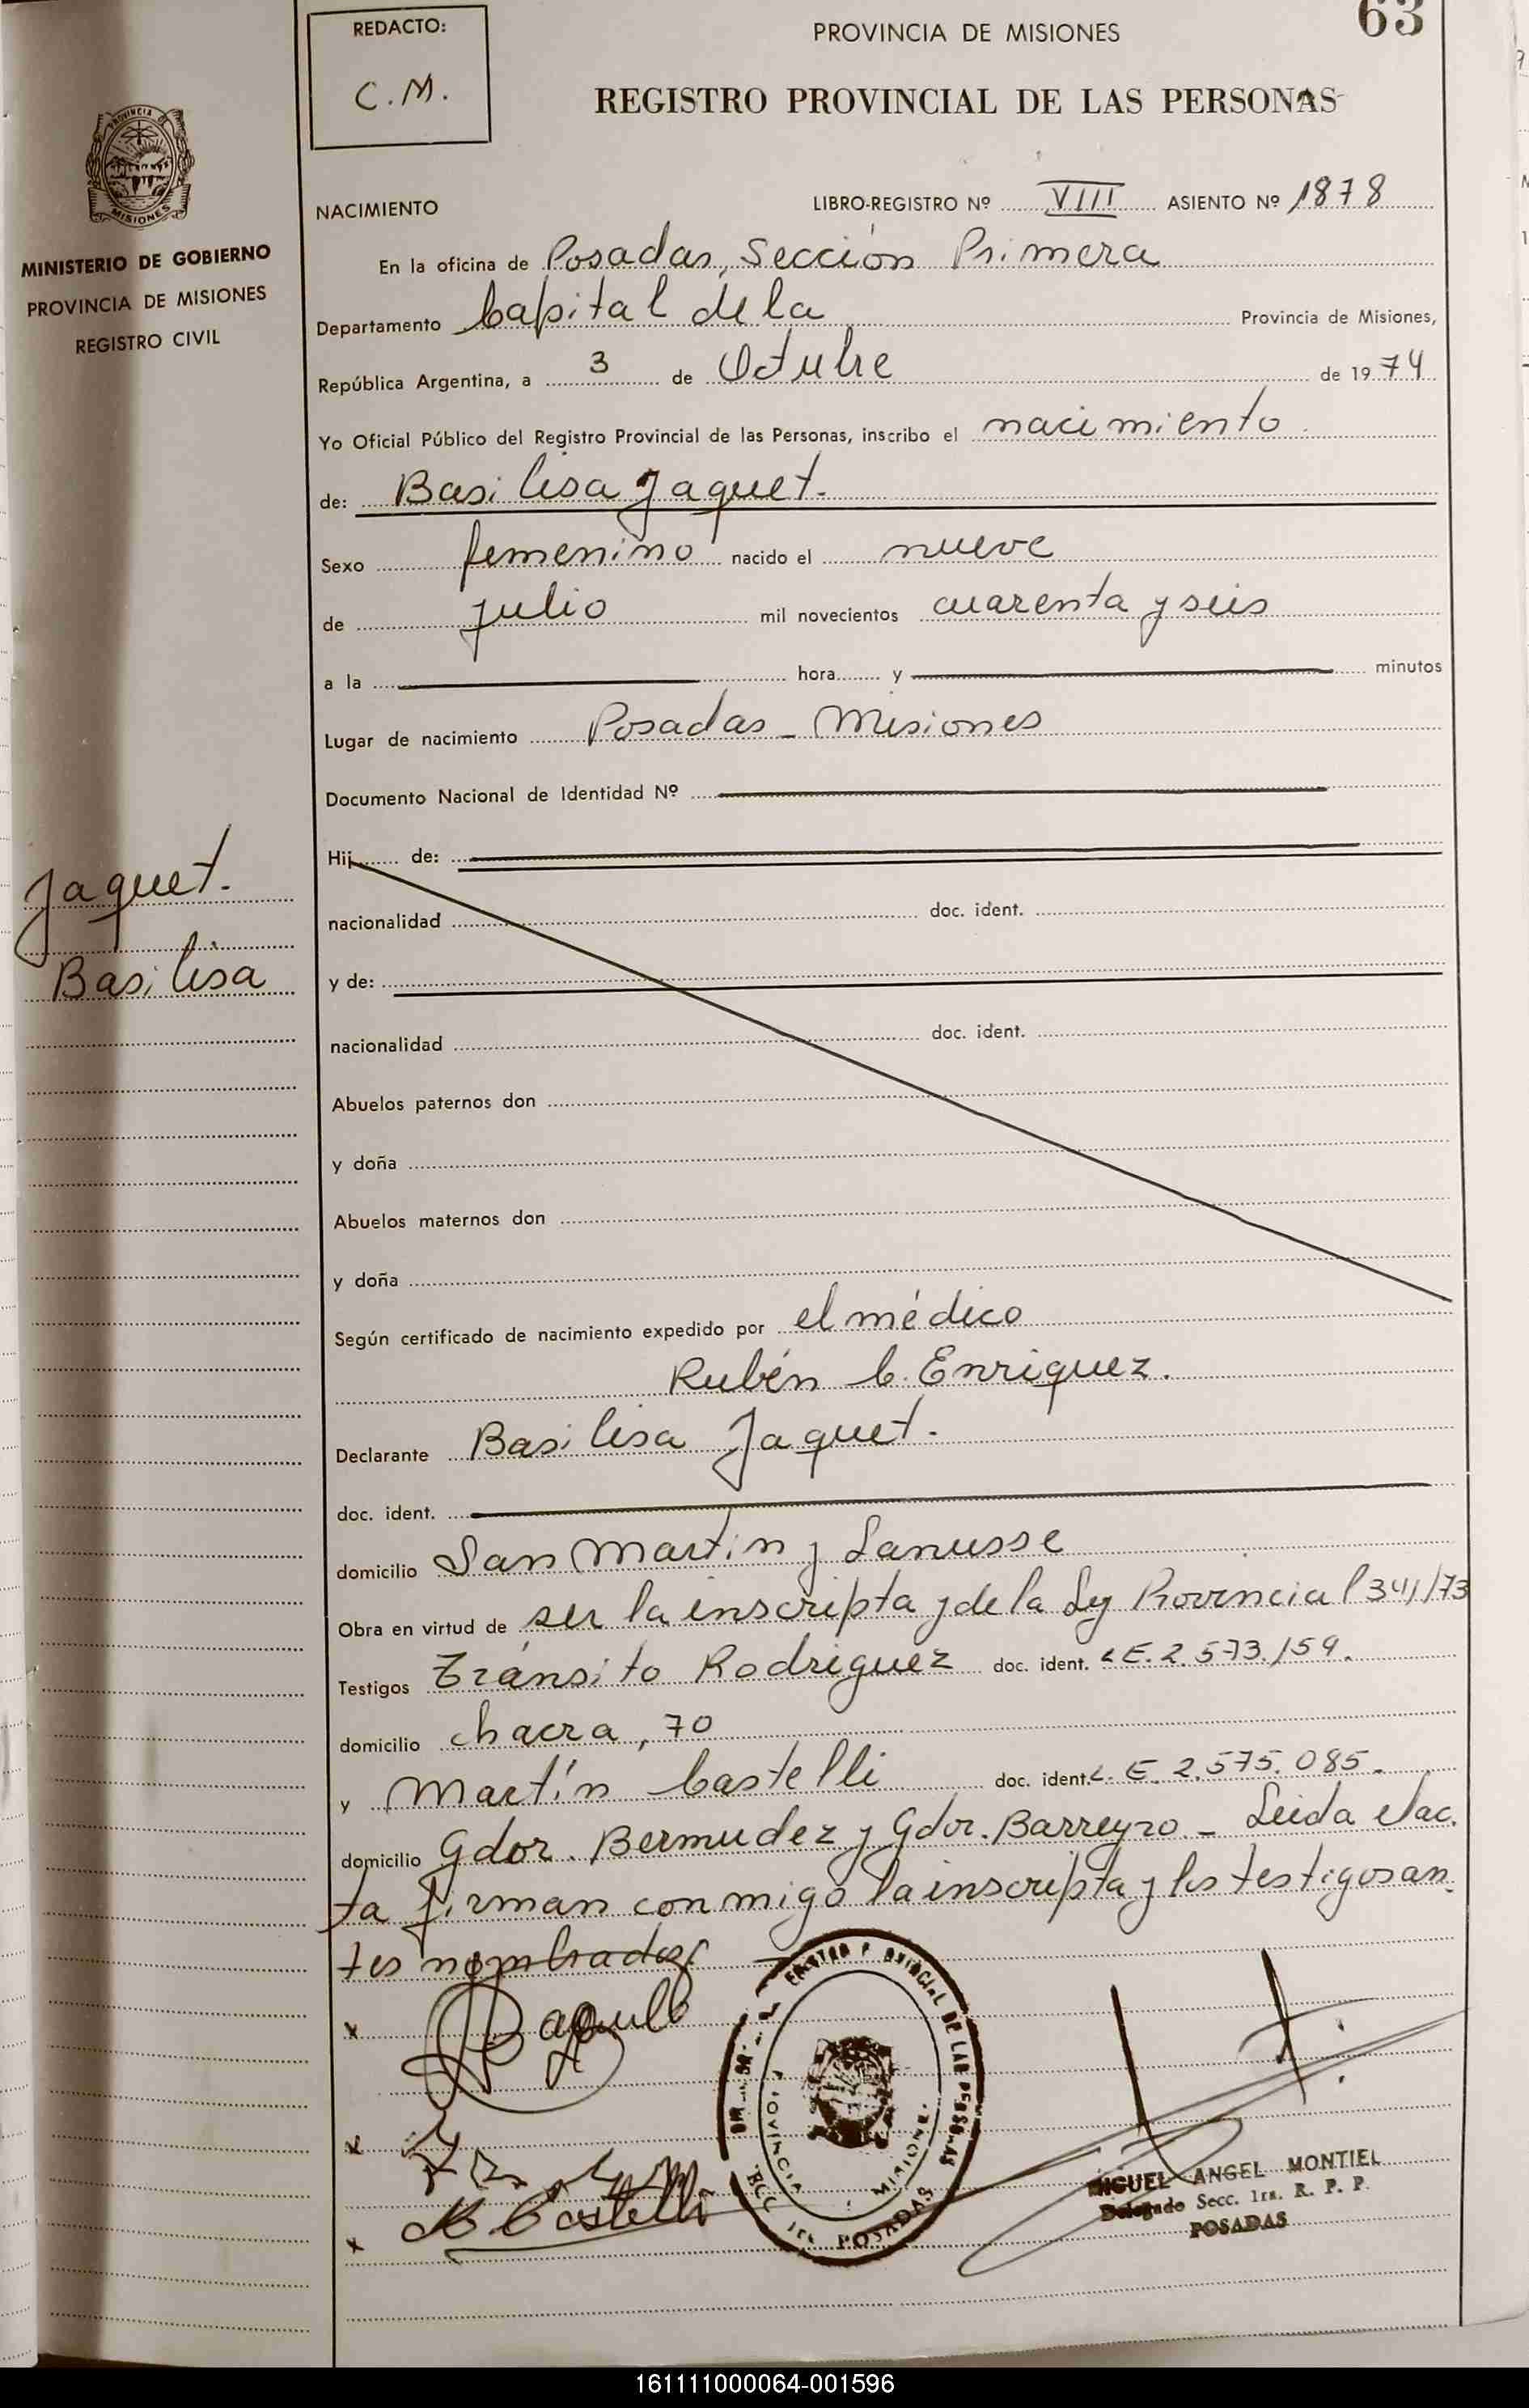 63
REDACTO:
C.M.
PROVINCIA DE MISIONES
REGISTRO PROVINCIAL DE LAS PERSONAS
PROVINCIA
MISIONES
MINISTERIO DE GOBIERNO
PROVINCIA DE MISIONES
REGISTRO CIVIL
NACIMIENTO LIBRO-REGISTRO Nº VIII ASIENTO Nº 1878
En la oficina de Posadas, Sección Primera
Departamento Capital de la Provincia de Misiones,
República Argentina, a 3 de Octubre de 1974
Yo Oficial Público del Registro Provincial de las Personas, inscribo el nacimiento
de: Basilisa Jaquet.
Sexo femenino nacido el nueve
de julio mil novecientos cuarenta y seis
a la hora y minutos
Lugar de nacimiento Posadas - Misiones
Documento Nacional de Identidad Nº
Jaquet.
Basilisa
Hij de:
nacionalidad doc. ident.
y de:
nacionalidad doc. ident.
Abuelos paternos don
y doña
Abuelos maternos don
y doña
Según certificado de nacimiento expedido por el médico
Rubén C. Enriquez.
Declarante Basilisa Jaquet.
doc. ident.
domicilio San Martín y Lanusse
Obra en virtud de ser la inscripta y de la Ley Provincial 341/73
Testigos Tránsito Rodriguez doc. ident. L.E. 2.573.159.
domicilio Chacra, 70
y Martín Castelli doc. ident. L.E. 2.575.085.
domicilio Gdor. Bermudez y Gdor. Barreyro - Leida el ac.
ta firman conmigo la inscripta y los testigos an.
tes nombrados
x
x
x Castelli
PROVINCIAL DE LAS PERSONAS
PROVINCIA MISIONES
POSADAS
MIGUEL ANGEL MONTIEL
Delegado Secc. 1ra. R. P. P.
POSADAS
161111000064-001596